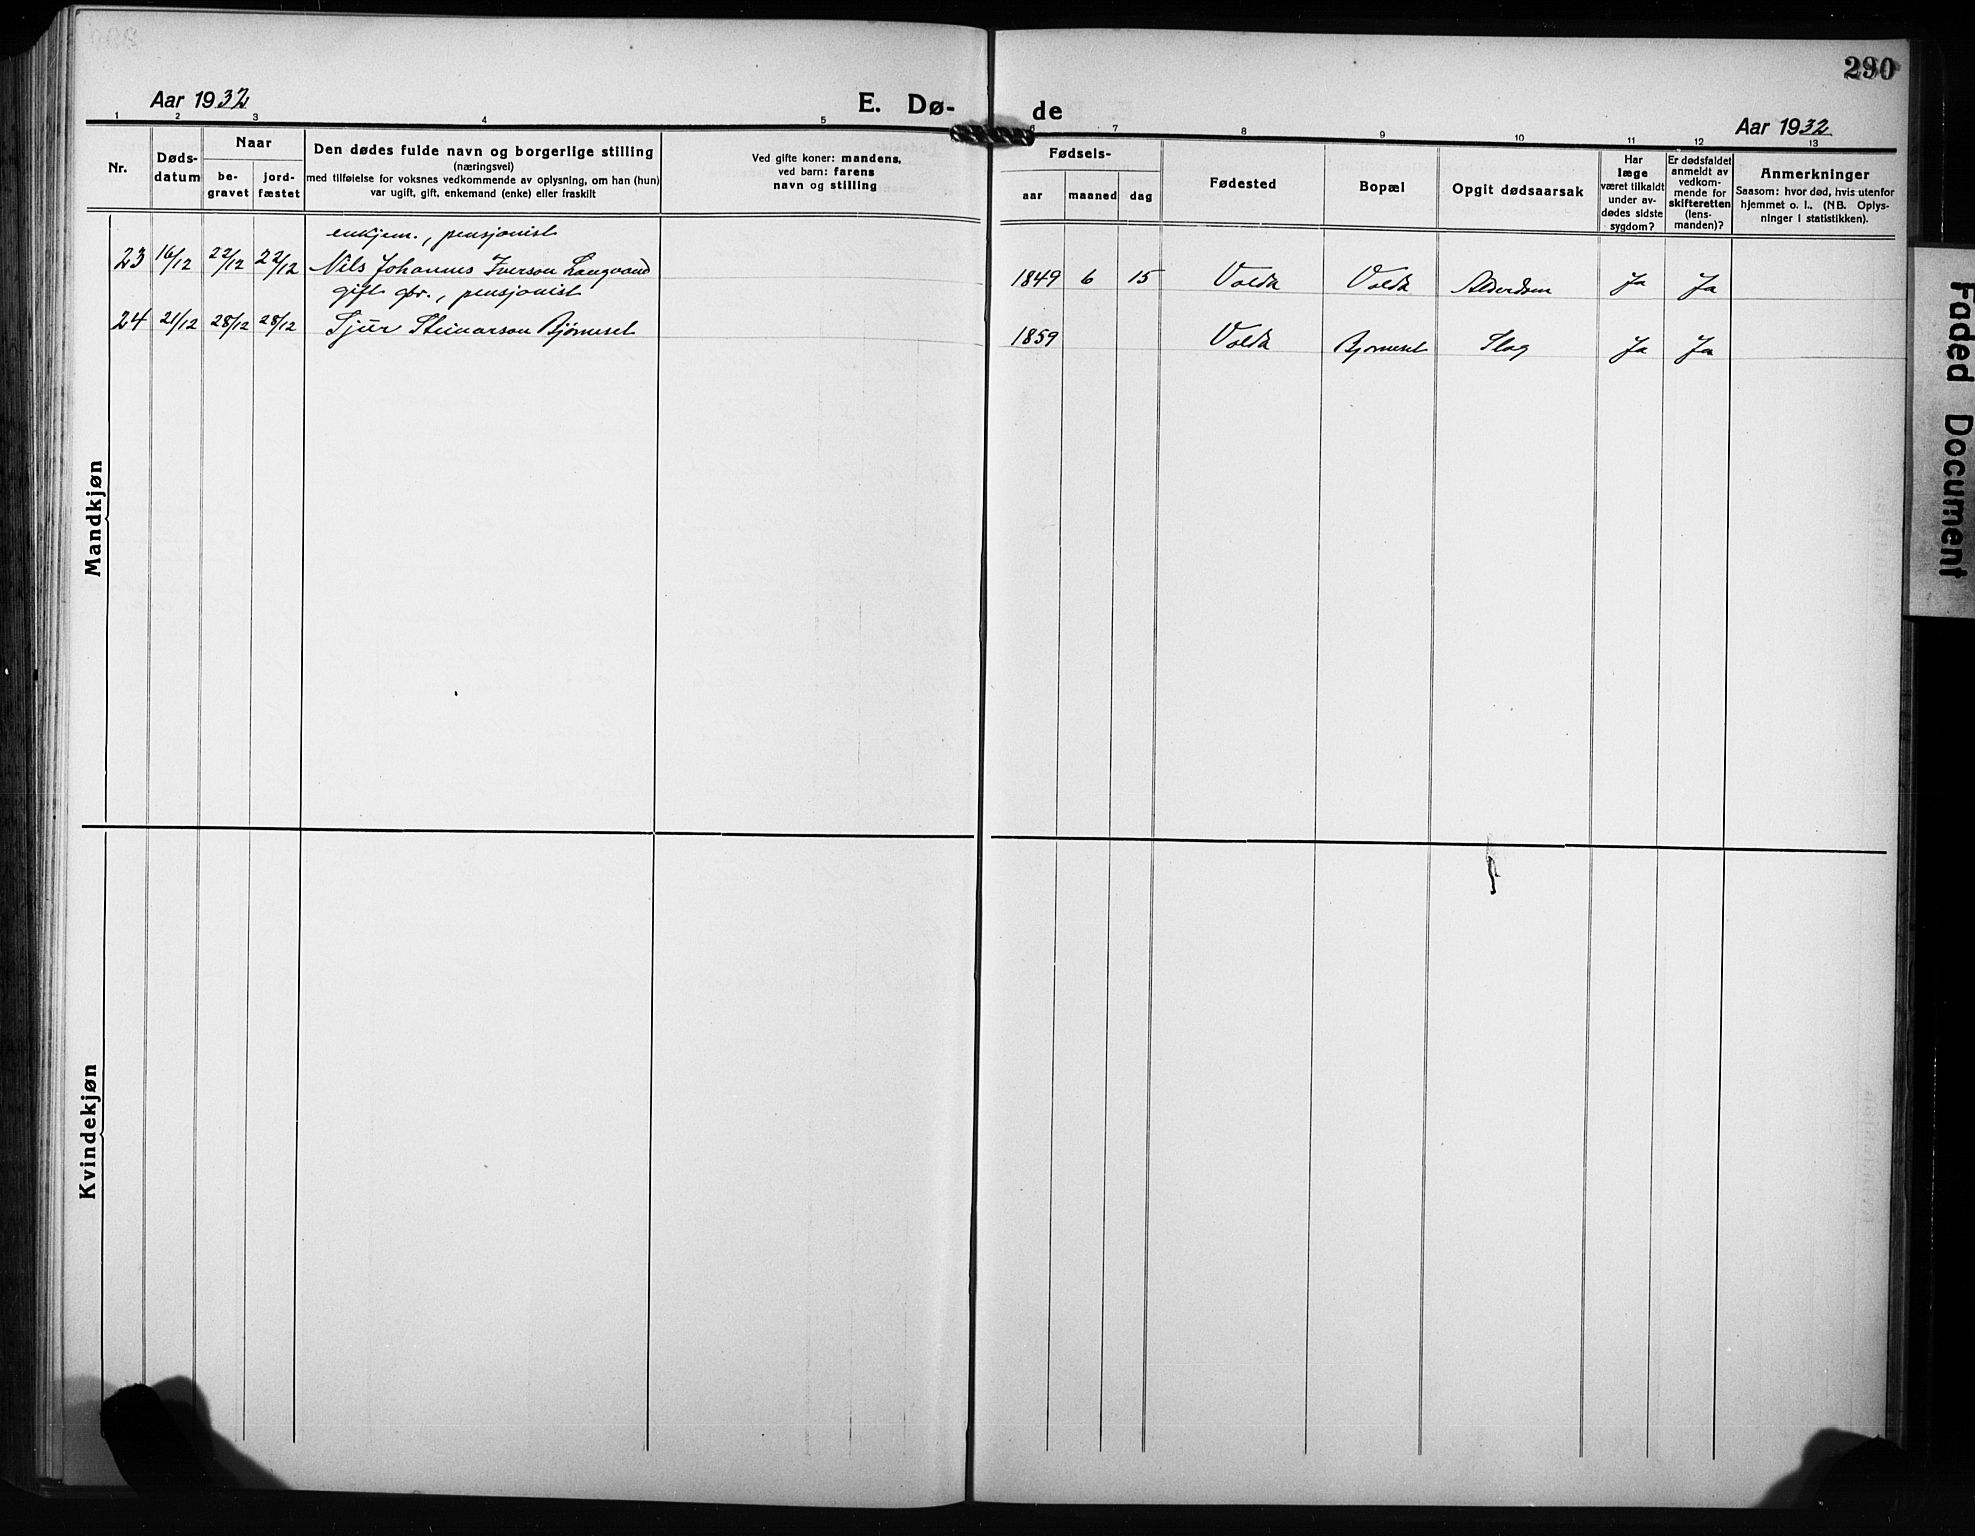 290
Aar 1932
E. Dø-
de
Aar 1932
1 2 3 4 5 6 7 8 9 10 11 12 13
Nr.
Døds-
datum
Naar
be-
gravet
jord-
fæstet
Den dødes fulde navn og borgerlige stilling
(næringsvei)
med tilføielse for voksnes vedkommende av oplysning, om han (hun)
var ugift, gift, enkemand (enke) eller fraskilt
Ved gifte koner: mandens,
ved barn: farens
navn og stilling
Fødsels-
aar
maaned
dag
Fødested
Bopæl
Opgit dødsaarsak
Har
læge
været tilkaldt
under av-
dødes sidste
sygdom?
Er dødsfaldet
anmeldt av
vedkom-
mende for
skifteretten
(lens-
manden)?
Anmerkninger
Saasom: hvor død, hvis utenfor
hjemmet o. l.. (NB. Oplys-
ninger i statistikken).
enkjem., pensjonist
23 16/12 22/12 22/12 Nils Johannes Iverson Langvand 1849 6 15 Volda Volda Alderdom Ja Ja
gift gbr., pensjonist
24 21/12 28/12 28/12 Sjur Steinarson Bjørneset 1859 Volda Bjørneset Slag Ja Ja
Mandkjøn
Kvindekjøn
Faded Document